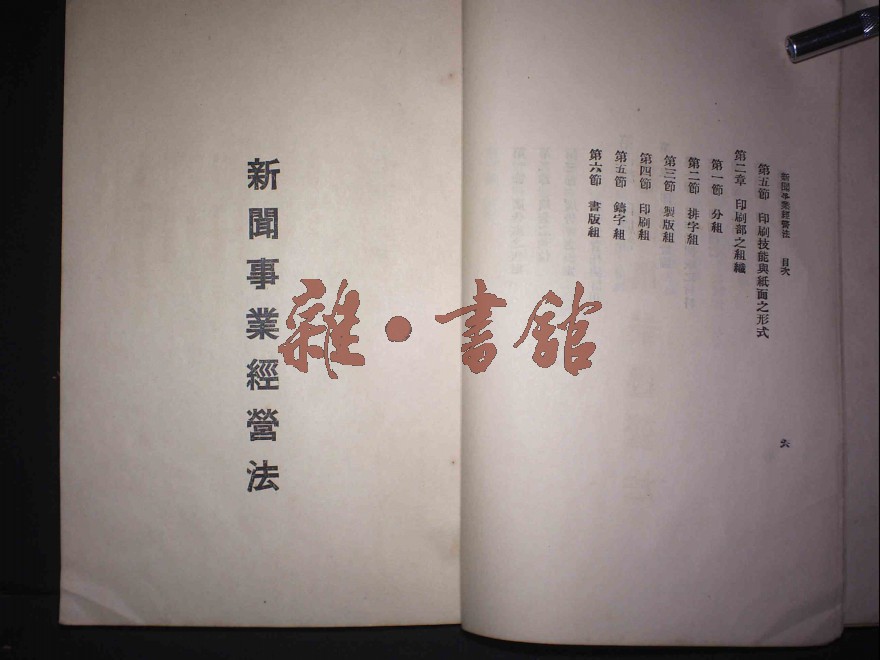 新聞事業經營法　目次
第五節　印刷技能與紙面之形式
第二章　印刷部之組織
第一節　分組
第二節　排字組
第三節　製版組
第四節　印刷組
第五節　鑄字組
第六節　書版組
六
新聞事業經營法
雜·書館